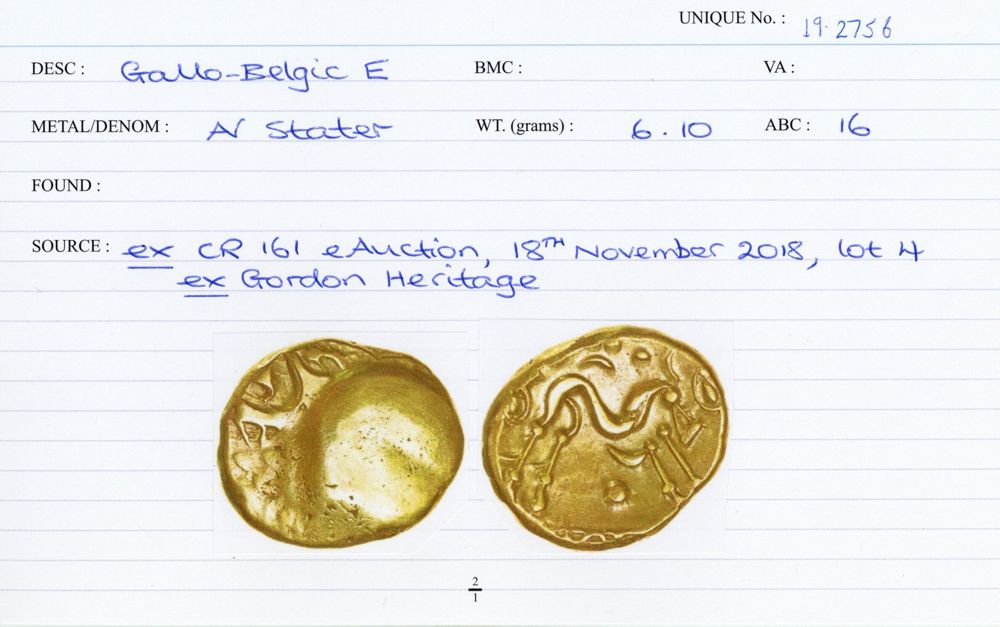 UNIQUE No. : 19.2756
DESC : Gallo-Belgic E BMC : VA :
METAL/DENOM : AV Stater WT. (grams) : 6.10 ABC : 16
FOUND :
SOURCE : ex CR 161 eAuction, 18TH November 2018, lot 4
ex Gordon Heritage
2
1